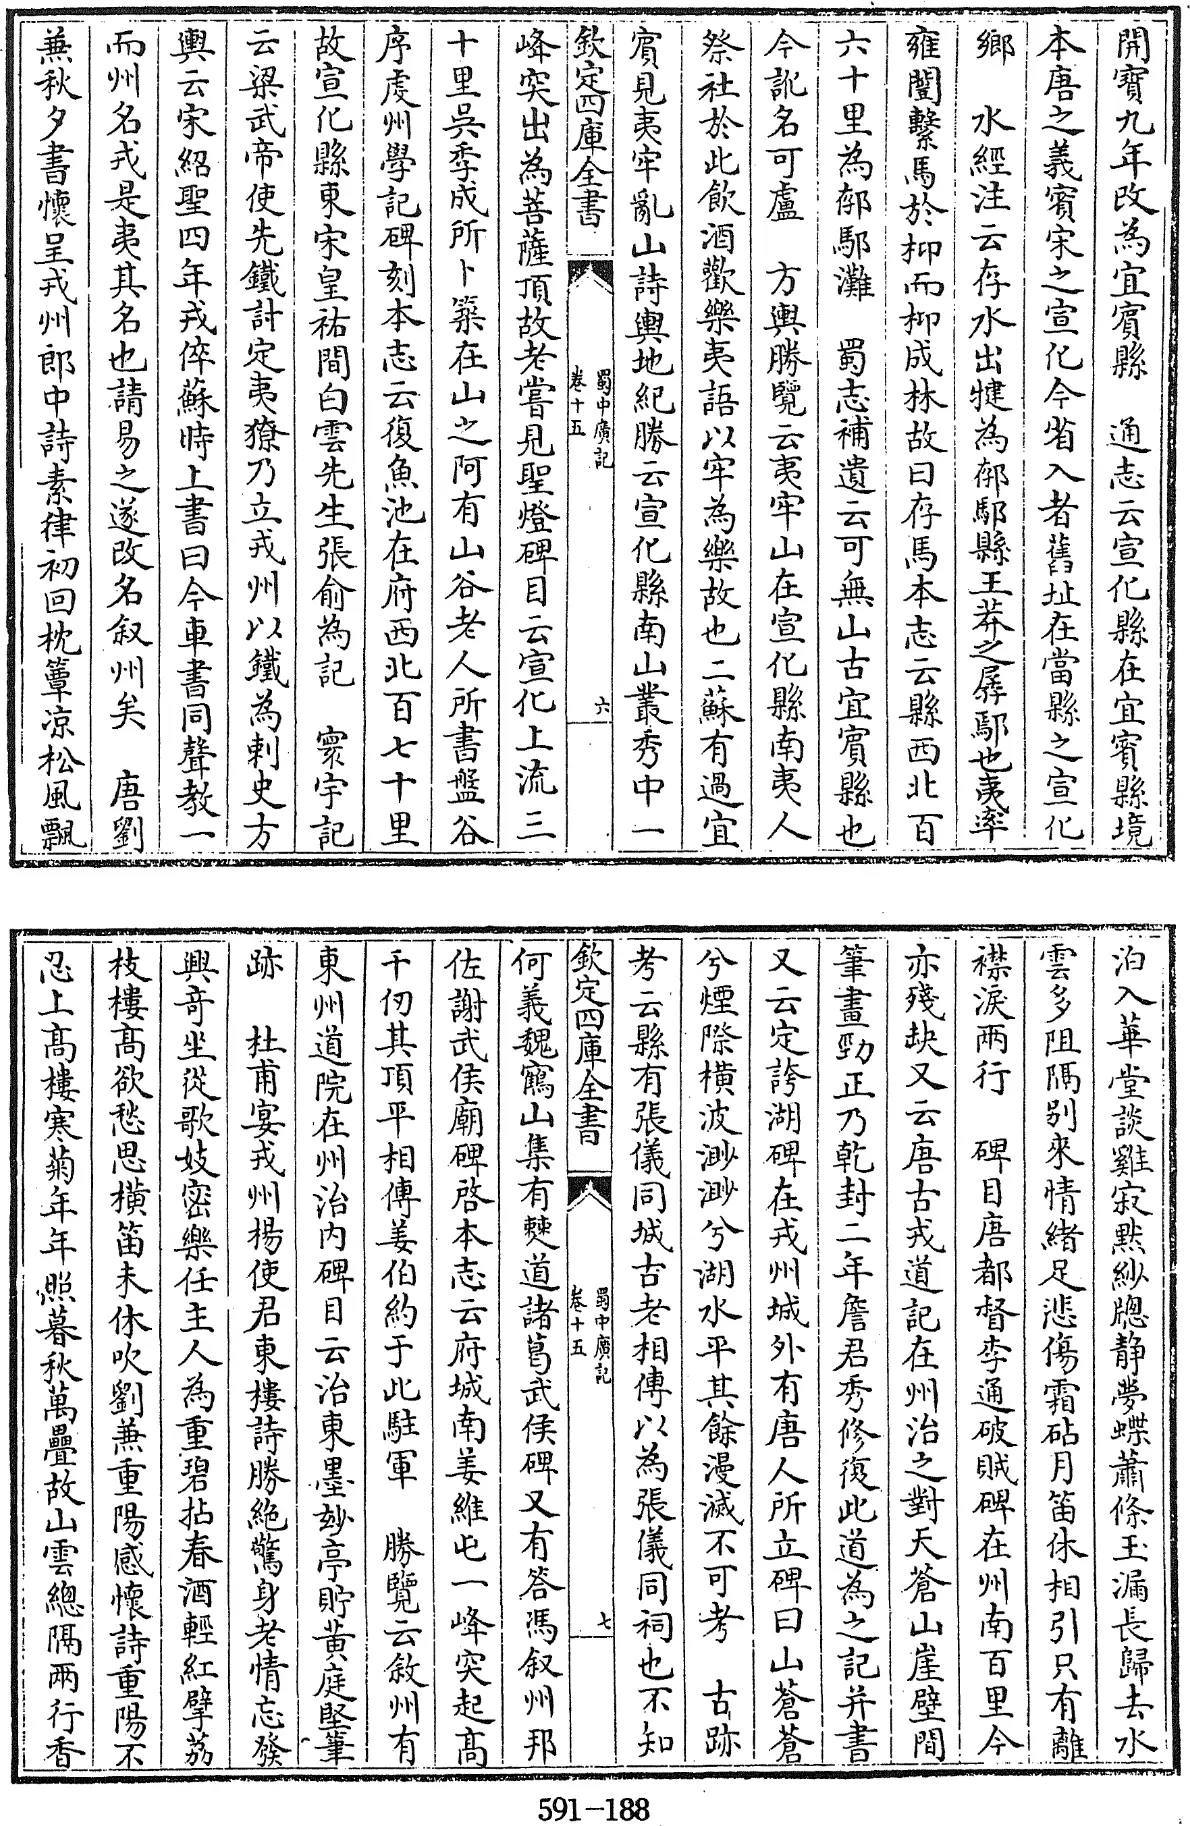 開寶九年改為宜賓縣　通志云宣化縣在宜賓縣境
本唐之義賓宋之宣化今省入者舊址在當縣之宣化
鄉　水經注云存水出犍為郁鄢縣王莽之孱鄢也夷率
雍闓繫馬於柳而柳成林故曰存馬本志云縣西北百
六十里為郁鄢灘　蜀志補遺云可無山古宜賓縣也
今訛名可盧　方輿勝覽云夷牢山在宣化縣南夷人
祭社於此飲酒歡樂夷語以牢為樂故也二蘇有過宜
賓見夷牢亂山詩輿地紀勝云宣化縣南山叢秀中一
欽定四庫全書
蜀中廣記
卷十五
六
峰突出為菩薩頂故老嘗見聖燈碑目云宣化上流三
十里吳季成所卜築在山之阿有山谷老人所書盤谷
序虔州學記碑刻本志云復魚池在府西北百七十里
故宣化縣東宋皇祐間白雲先生張俞為記　寰宇記
云梁武帝使先鐵討定夷獠乃立戎州以鐵為刺史方
輿云宋紹聖四年戎倅蘇時上書曰今車書同聲教一
而州名戎是夷其名也請易之遂改名叙州矣　唐劉
蒹秋夕書懷呈戎州郎中詩素律初回枕簟凉松風飄
泊入華堂談雞寂黙紗牕静夢蝶蕭條玉漏長歸去水
雲多阻隔别來情緒足悲傷霜砧月笛休相引只有離
襟淚兩行　碑目唐都督李通破賊碑在州南百里今
亦殘缺又云唐古戎道記在州治之對天蒼山崖壁間
筆畫勁正乃乾封二年詹君秀修復此道為之記并書
又云定誇湖碑在戎州城外有唐人所立碑曰山蒼蒼
兮煙際横波渺渺兮湖水平其餘漫滅不可考　古跡
考云縣有張儀同城古老相傳以為張儀同祠也不知
欽定四庫全書
蜀中廣記
卷十五
七
何義魏鶴山集有僰道諸葛武侯碑又有答馮叙州邦
佐謝武侯廟碑啓本志云府城南姜維屯一峰突起高
千仞其頂平相傳姜伯約于此駐軍　勝覽云敘州有
東州道院在州治内碑目云治東墨妙亭貯黄庭堅筆
跡　杜甫宴戎州楊使君東樓詩勝絶驚身老情忘發
興竒坐從歌妓密樂任主人為重碧拈春酒輕紅擘荔
枝樓高欲愁思横笛未休吹劉蒹重陽感懷詩重陽不
忍上高樓寒菊年年照暮秋萬疊故山雲總隔兩行香
591-188